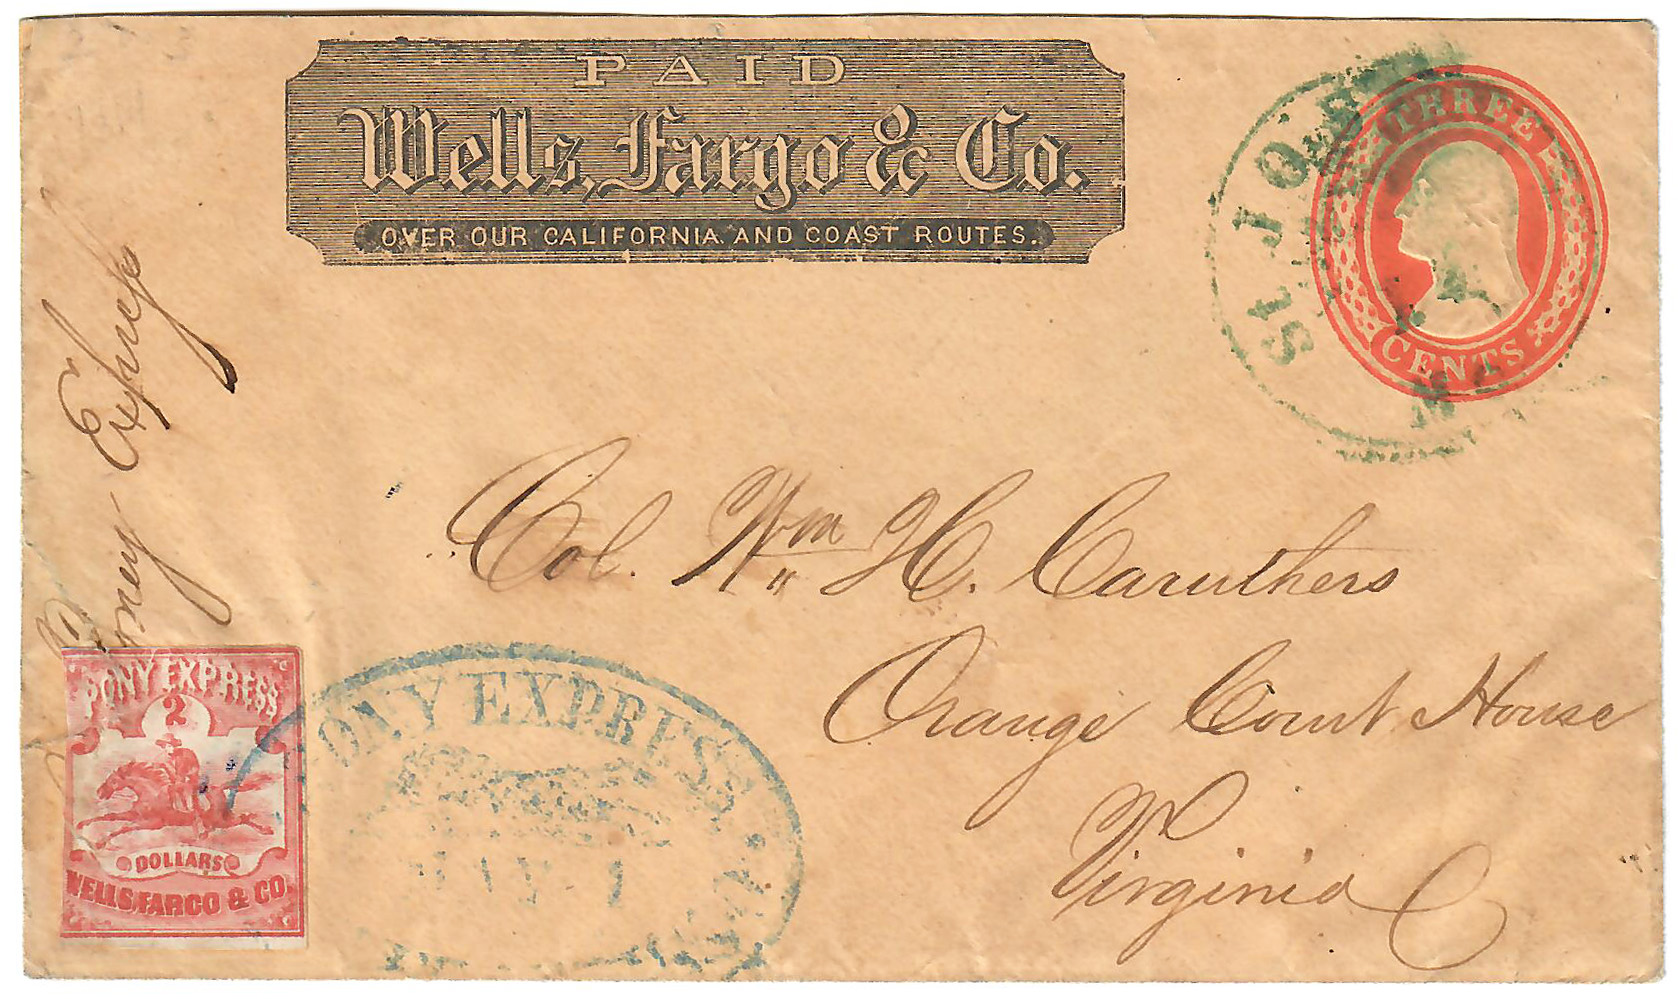 PAID
Wells, Fargo & Co.
OVER OUR CALIFORNIA AND COAST ROUTES.
THREE
CENTS
St JOSE
Express
Col. Wm H. Caruthers
Orange Court House
Virginia
PONY EXPRESS
2
DOLLARS
WELLS, FARGO & CO.
PONY EXPRESS